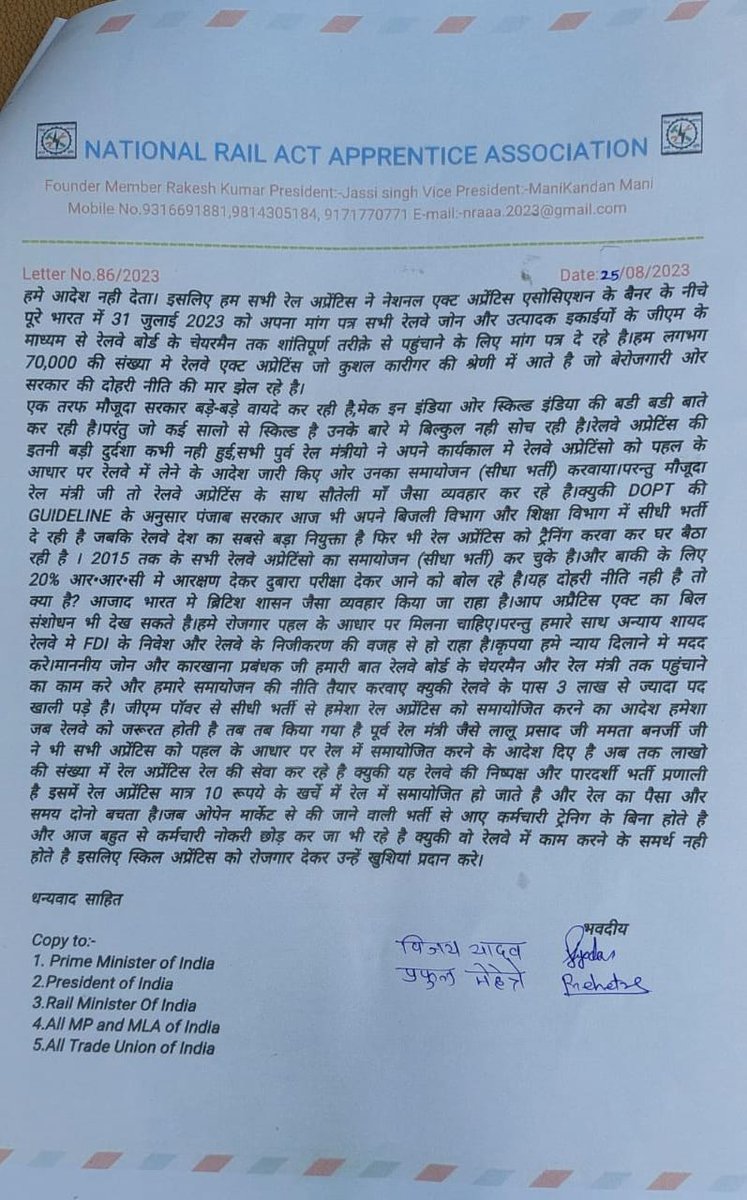 NATIONAL RAIL ACT APPRENTICE ASSOCIATION
Founder Member Rakesh Kumar President:-Jassi singh Vice President:-ManiKandan Mani
Mobile No.9316691881,9814305184, 9171770771 E-mail:-nraaa.2023@gmail.com
Letter No.86/2023 Date:25/08/2023
हमे आदेश नही देता। इसलिए हम सभी रेल अप्रेंटिस ने नेशनल एक्ट अप्रेंटिस एसोसिएशन के बैनर के नीचे
पूरे भारत में 31 जुलाई 2023 को अपना मांग पत्र सभी रेलवे जोन और उत्पादक इकाईयों के जीएम के
माध्यम से रेलवे बोर्ड के चेयरमैन तक शांतिपूर्ण तरीक़े से पहुंचाने के लिए मांग पत्र दे रहे है।हम लगभग
70,000 की संख्या मे रेलवे एक्ट अप्रेटिंस जो कुशल कारीगर की श्रेणी में आते है जो बेरोजगारी ओर
सरकार की दोहरी नीति की मार झेल रहे है।
एक तरफ मौजूदा सरकार बड़े-बड़े वायदे कर रही है,मेक इन इंडिया ओर स्किल्ड इंडिया की बडी बडी बाते
कर रही है।परंतु जो कई सालो से स्किल्ड है उनके बारे मे बिल्कुल नही सोच रही है।रेलवे अप्रेटिंस की
इतनी बड़ी दुर्दशा कभी नही हुई,सभी पुर्व रेल मंत्रीयो ने अपने कार्यकाल मे रेलवे अप्रेटिंसो को पहल के
आधार पर रेलवे में लेने के आदेश जारी किए ओर उनका समायोजन (सीधा भर्ती) करवाया।परन्तु मौजूदा
रेल मंत्री जी तो रेलवे अप्रेटिंस के साथ सौतेली माँ जैसा व्यवहार कर रहे है।क्युकी DOPT की
GUIDELINE के अनुसार पंजाब सरकार आज भी अपने बिजली विभाग और शिक्षा विभाग में सीधी भर्ती
दे रही है जबकि रेलवे देश का सबसे बड़ा नियुक्ता है फिर भी रेल अप्रेटिंस को ट्रैनिंग करवा कर घर बैठा
रही है । 2015 तक के सभी रेलवे अप्रेटिंसो का समायोजन (सीधा भर्ती) कर चुके है।और बाकी के लिए
20% आर॰आर॰सी मे आरक्षण देकर दुबारा परीक्षा देकर आने को बोल रहे है।यह दोहरी नीति नही है तो
क्या है? आजाद भारत मे ब्रिटिश शासन जैसा व्यवहार किया जा राहा है।आप अप्रैटिस एक्ट का बिल
संशोधन भी देख सकते है।हमे रोजगार पहल के आधार पर मिलना चाहिए।परन्तु हमारे साथ अन्याय शायद
रेलवे मे FDI के निवेश और रेलवे के निजीकरण की वजह से हो राहा है।कृपया हमे न्याय दिलाने मे मदद
करे।माननीय जोन और कारखाना प्रबंधक जी हमारी बात रेलवे बोर्ड के चेयरमैन और रेल मंत्री तक पहुंचाने
का काम करे और हमारे समायोजन की नीति तैयार करवाए क्युकी रेलवे के पास 3 लाख से ज्यादा पद
खाली पड़े है। जीएम पॉवर से सीधी भर्ती से हमेशा रेल अप्रेंटिस को समायोजित करने का आदेश हमेशा
जब रेलवे को जरूरत होती है तब तब किया गया है पूर्व रेल मंत्री जैसे लालू प्रसाद जी ममता बनर्जी जी
ने भी सभी अप्रेंटिस को पहल के आधार पर रेल में समायोजित करने के आदेश दिए है अब तक लाखो
की संख्या में रेल अप्रेंटिस रेल की सेवा कर रहे है क्युकी यह रेलवे की निष्पक्ष और पारदर्शी भर्ती प्रणाली
है इसमें रेल अप्रेंटिस मात्र 10 रूपये के खर्चे में रेल में समायोजित हो जाते है और रेल का पैसा और
समय दोनो बचता है।जब ओपेन मार्केट से की जाने वाली भर्ती से आए कर्मचारी ट्रेनिग के बिना होते है
और आज बहुत से कर्मचारी नोकरी छोड़ कर जा भी रहे है क्युकी वो रेलवे में काम करने के समर्थ नही
होते है इसलिए स्किल अप्रेंटिस को रोजगार देकर उन्हें खुशियां प्रदान करे।
धन्यवाद साहित
भवदीय
Copy to:-
विजय यादव
प्रफुल मेहेत्रे
1. Prime Minister of India
2.President of India
3.Rail Minister Of India
4.All MP and MLA of India
5.All Trade Union of India